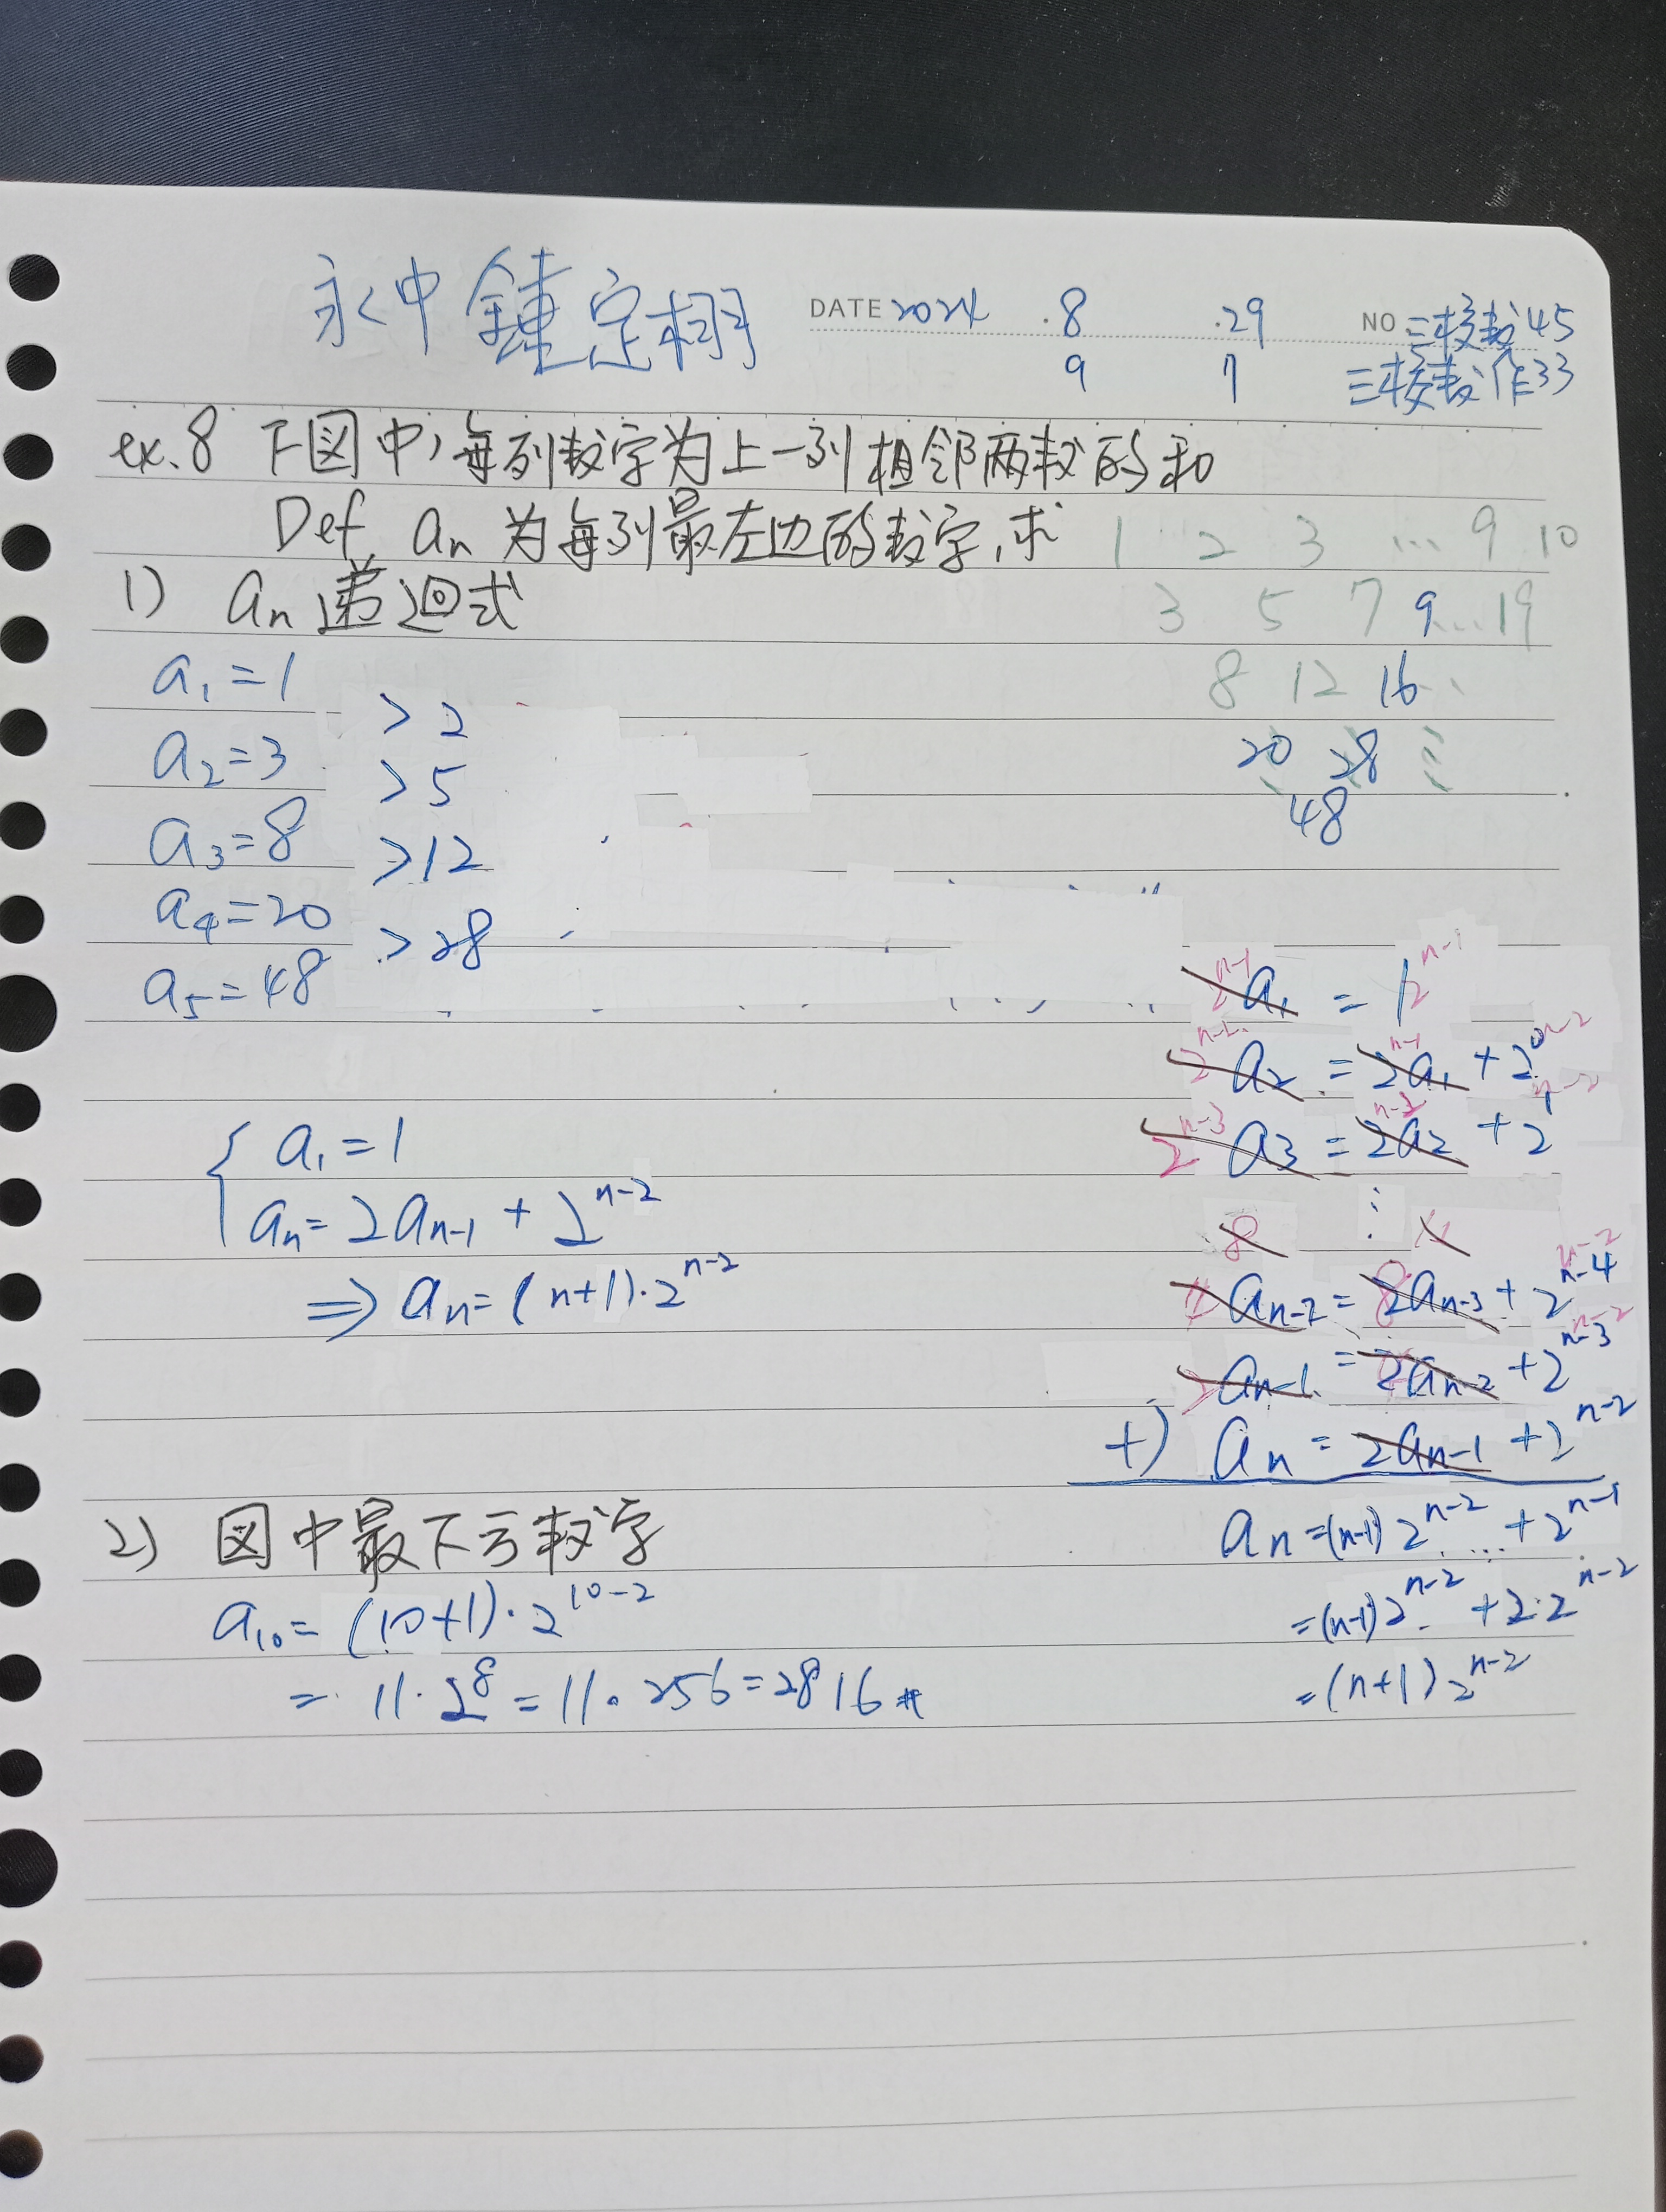 永中 鍾定栩 DATE 2024 .8 .29 NO 三校数45
9 7 三校数作33
ex.8 下図中,每列数字为上一列相邻两数的和
Def. aₙ 为每列最左边的数字,求
1 2 3 … 9 10
3 5 7 9…19
8 12 16
20 28
48
1) aₙ 递迴式
a₁=1
>2
a₂=3
>5
a₃=8
>12
a₄=20
>28
a₅=48
{ a₁=1
aₙ=2aₙ₋₁+2ⁿ⁻²
⇒ aₙ=(n+1)·2ⁿ⁻²
2ⁿ⁻¹a₁ = 1 2ⁿ⁻¹
2ⁿ⁻²a₂ = 2ⁿ⁻¹a₁ + 2⁰ ⁿ⁻²
2ⁿ⁻³a₃ = 2ⁿ⁻²a₂ + 2¹ ⁿ⁻²
⋮
8 4
4aₙ₋₂ = 2aₙ₋₃ + 2ⁿ⁻⁴ ⁿ⁻²
2aₙ₋₁ = 2aₙ₋₂ + 2ⁿ⁻³ ⁿ⁻²
+) aₙ = 2aₙ₋₁ + 2ⁿ⁻²
aₙ =(n-1) 2ⁿ⁻² … + 2ⁿ⁻¹
=(n-1)2ⁿ⁻² + 2·2ⁿ⁻²
=(n+1)2ⁿ⁻²
2) 図中最下方数字
a₁₀= (10+1)·2¹⁰⁻²
= 11·2⁸ = 11·256=2816 #